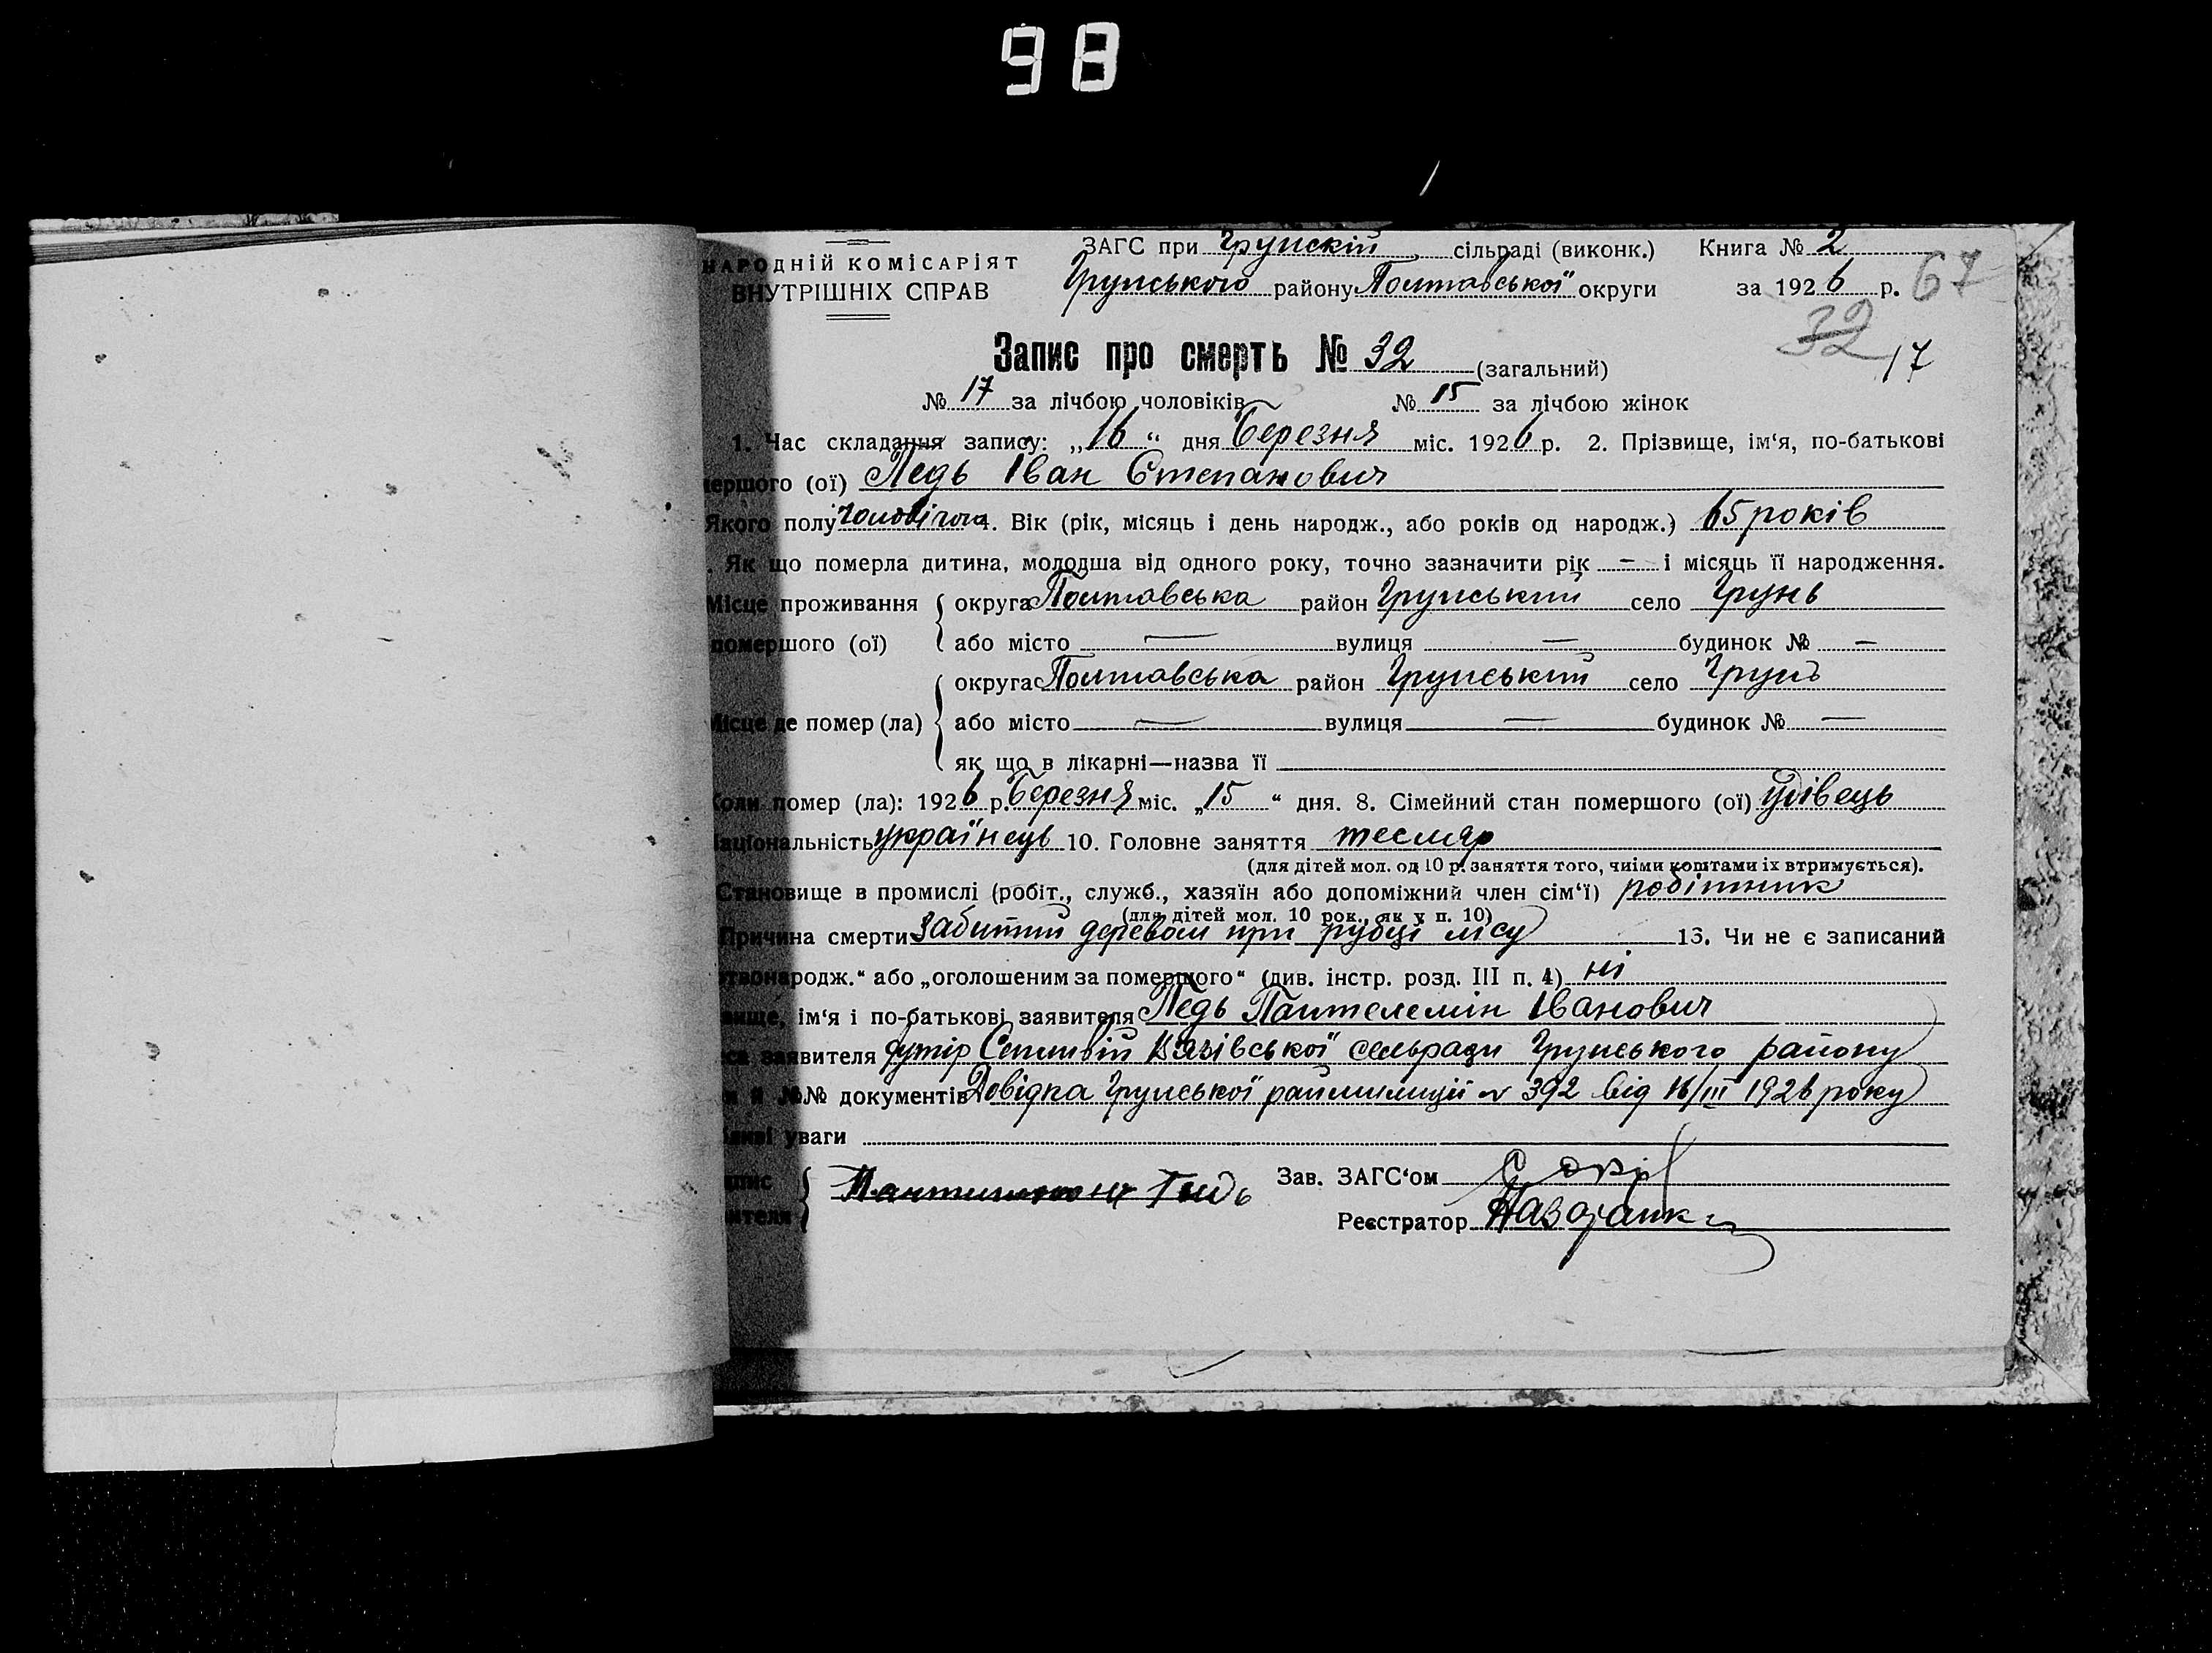 98
НАРОДНІЙ КОМІСАРІЯТ
ВНУТРІШНІХ СПРАВ
ЗАГС при Грунскій сільраді (виконк.) Книга № 2
Грунського району Полтавської округи за 1926 р. 67
32 17
Запис про смерть № 32 (загальний)
№ 17 за лічбою чоловіків № 15 за лічбою жінок
1. Час складання запису: „16“ дня Березня міс. 1926 р. 2. Прізвище, ім‘я, по-батькові
мершого (ої) Педь Іван Степанович
Якого полу чоловічого 4. Вік (рік, місяць і день народж., або років од народж.) 65 років
. Як що померла дитина, молодша від одного року, точно зазначити рік — і місяць її народження.
Місце проживання округа Полтавська район Грунський село Грунь
помершого (ої) або місто — вулиця — будинок № —
округа Полтавська район Грунський село Грунь
Місце де помер (ла) або місто — вулиця — будинок № —
як що в лікарні—назва її
Коли помер (ла): 1926 р. Березня міс. „15“ дня. 8. Сімейний стан помершого (ої) удівець
Національність українець 10. Головне заняття тесляр
(для дітей мол. од 10 р. заняття того, чиїми коштами їх втримується).
Становище в промислі (робіт., служб., хазяїн або допоміжний член сім‘ї) робітник
(для дітей мол. 10 рок., як у п. 10)
Причина смерти забитий деревом при рубці лісу 13. Чи не є записаний
твонародж.“ або „оголошеним за помершого“ (див. інстр. розд. III п. 4) ні
вище, ім‘я і по-батькові заявителя Педь Пантелемін Іванович
са заявителя хутір Вязівської сельради Грунського району
и й №№ документів Довідка Грунської райміліції № 392 від 16/III 1926 року
бливі уваги
дпис
вителя Педь
Зав. ЗАГС‘ом
Реєстратор